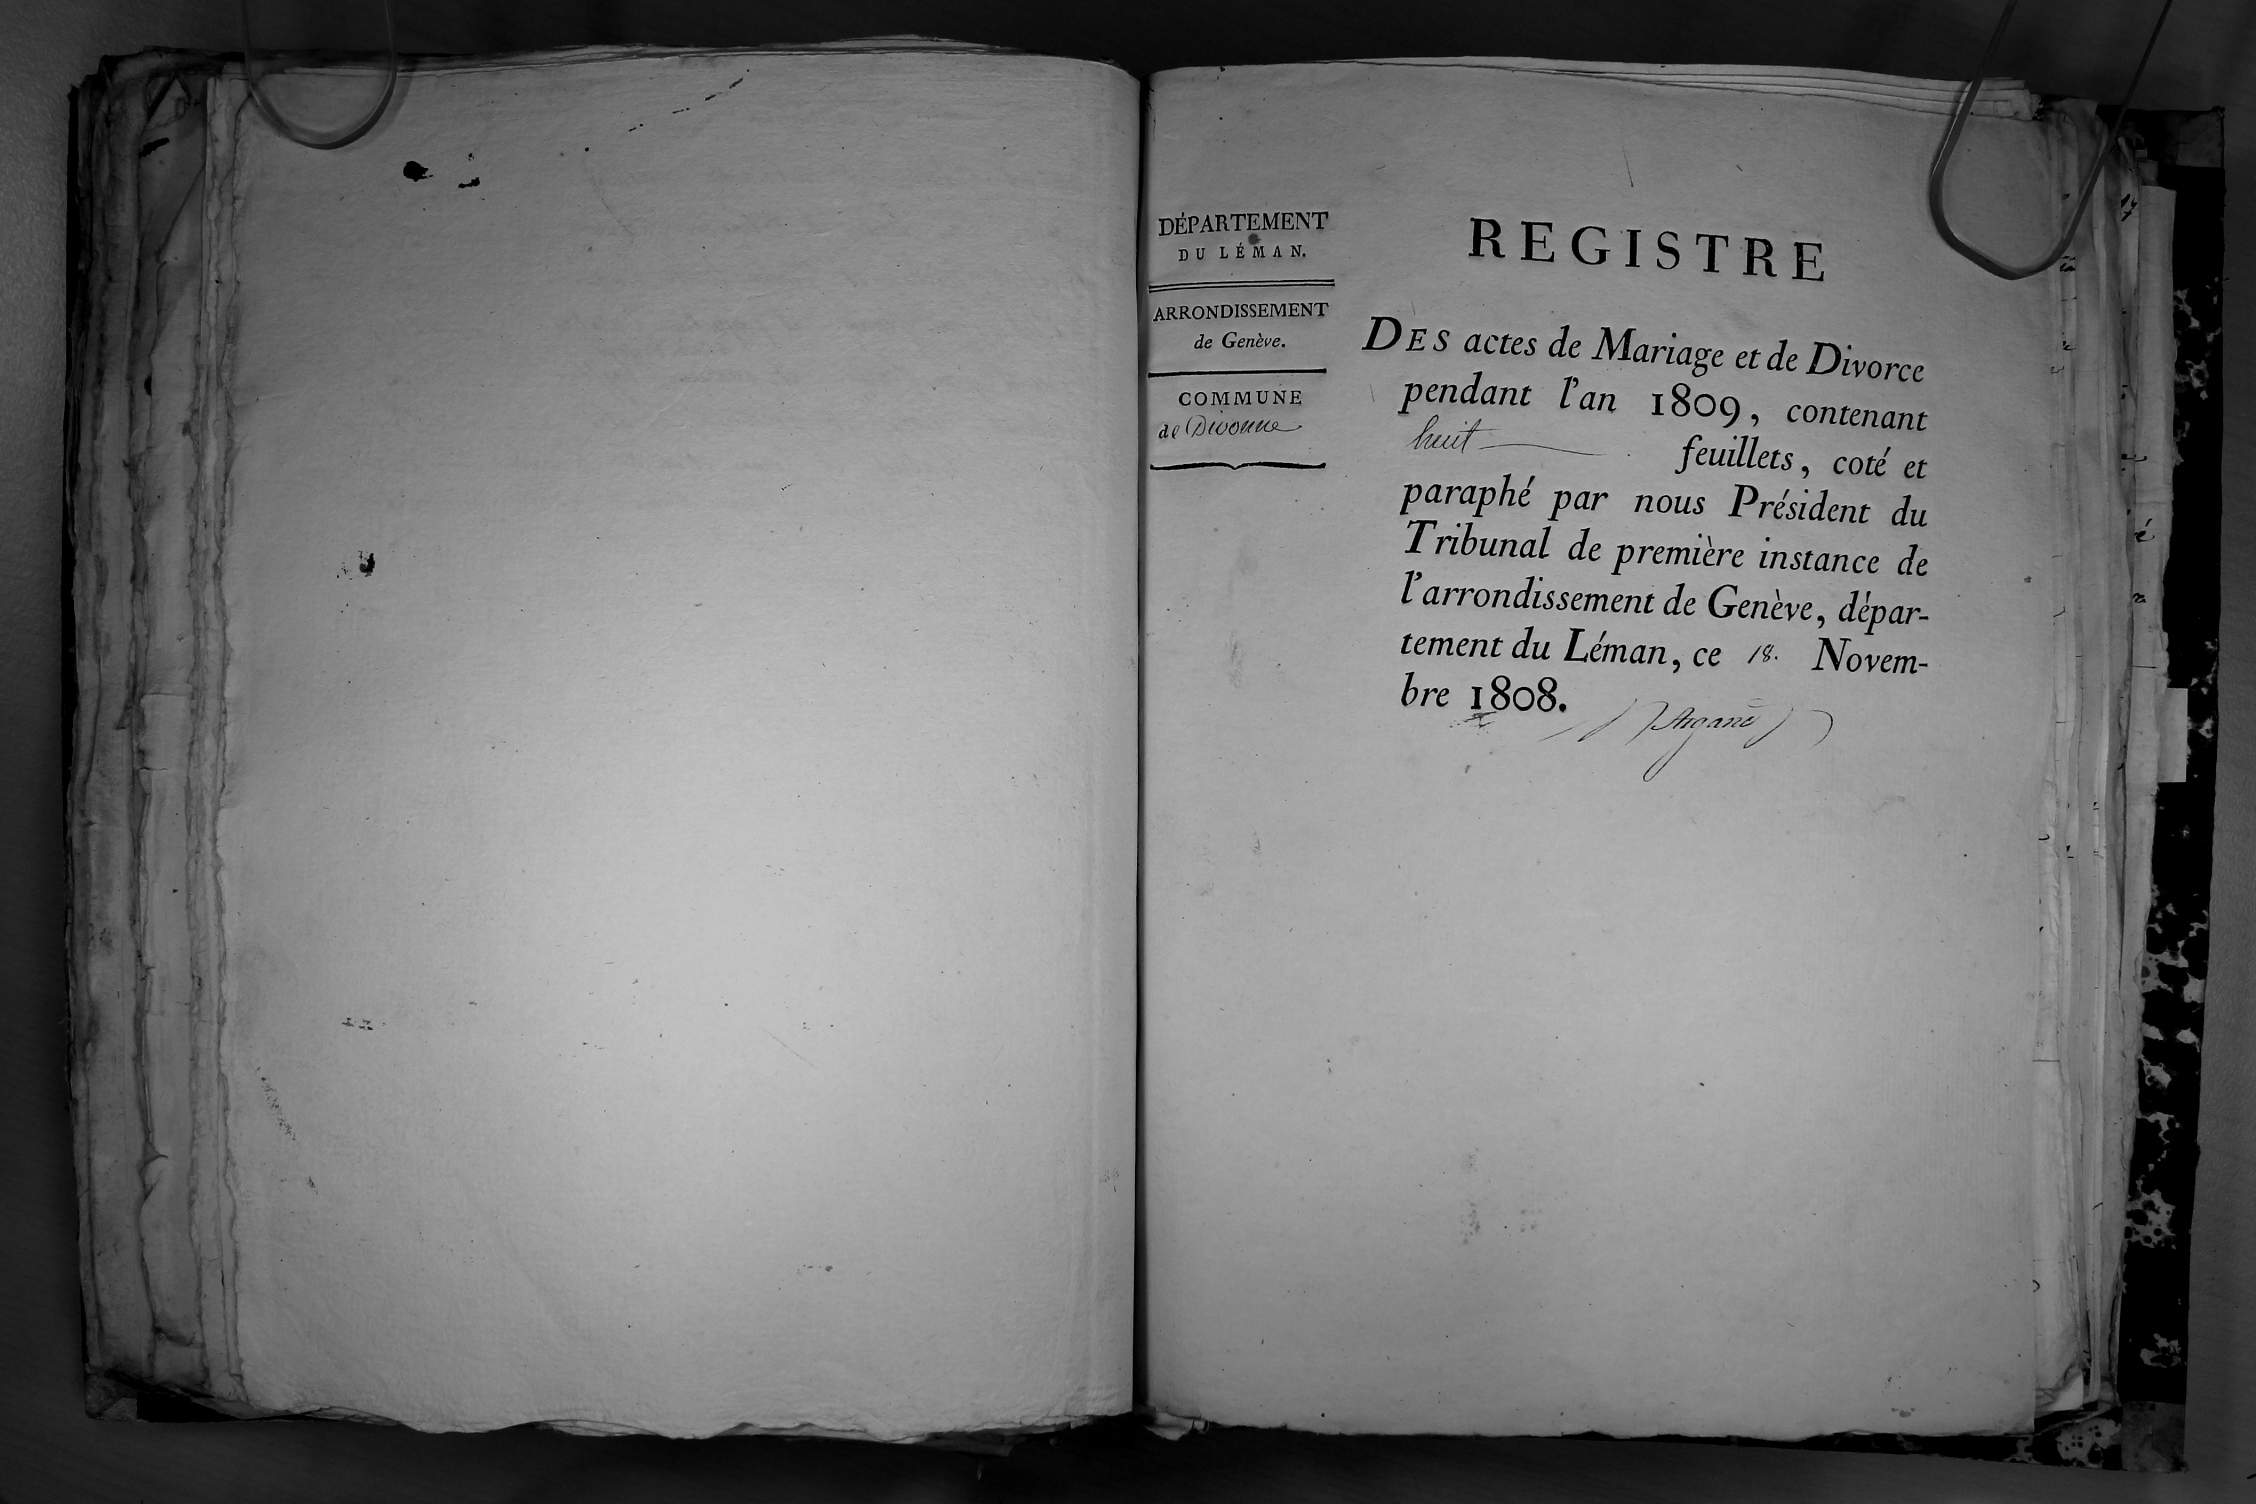 DÉPARTEMENT
DU LÉMAN.
ARRONDISSEMENT
de Genève.
COMMUNE
de Divonne
REGISTRE
DES actes de Mariage et de Divorce
pendant l'an 1809, contenant
huit feuillets, coté et
paraphé par nous Président du
Tribunal de première instance de
l'arrondissement de Genève, dépar-
tement du Léman, ce 18. Novem-
bre 1808.